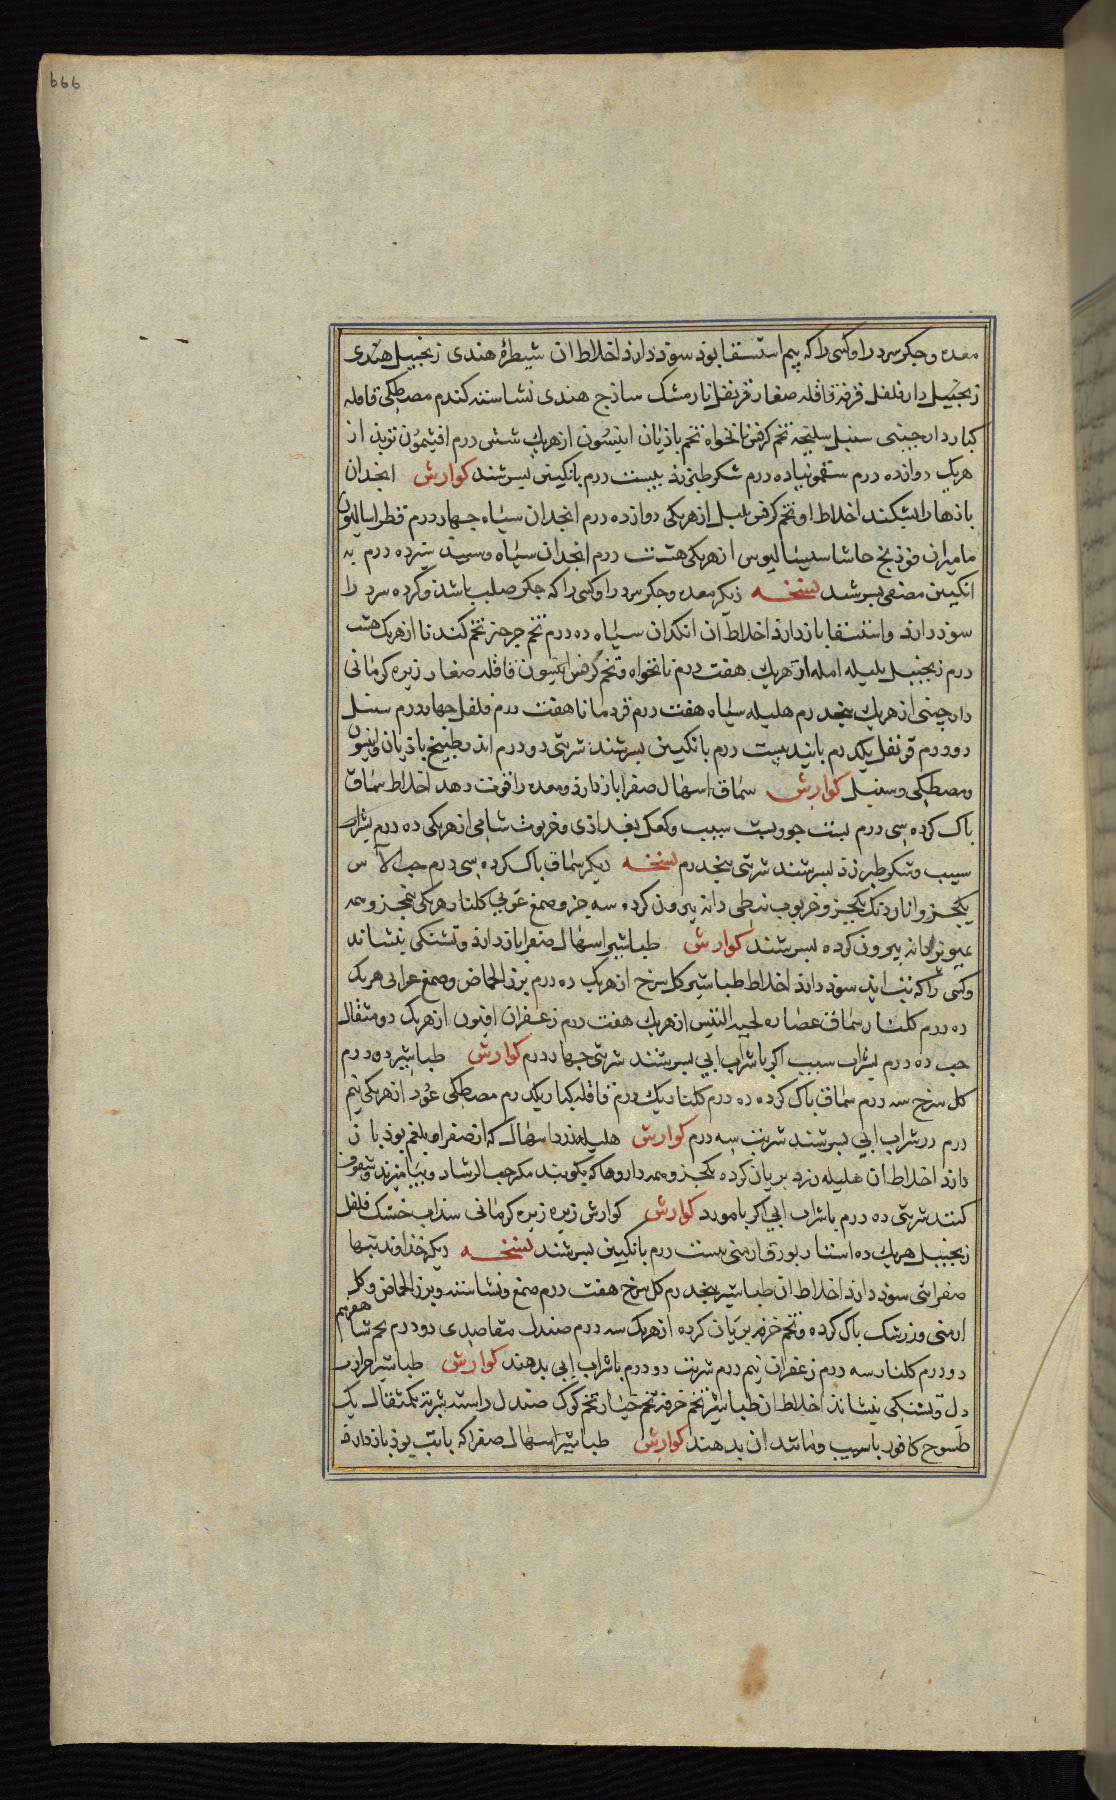 ۶۶۹
معده و جکر سرد را و کسی را که بیم استسقا بوذ سوذ دارذ اخلاط ان شیطرهٔ هندی زنجبیل هندی
زنجبیل دارفلفل قرفه قاقله صغار قرنفل نارمشک ساذج هندی نشاسته کندم مصطکی قاقله
کبار دارجینی سنبل سلیخه تخم کرفس نانخواه تخم باذیان انیسون از هریک شش درم افتیمون تربذ از
هریک دوازده درم سقمونیا ده درم شکر طبرزذ بیست درم بانکبین بسرشند کوارش انجدان
باذها را بشکند اخلاط او تخم کرفس پلپل از هریکی دوازده درم انجدان سیاه جهار درم فطراسالیون
مامیران فوذنج حاشا سیسالیوس از هریکی هشت درم انجدان سیاه و سپید سیزده درم به
انکبین مصفی بسرشند نسخه دیکر معده و جکر سرد را و کسی را که جکر صلب باشذ و کرده سرد را
سوذ دارذ و استسقا باز دارذ اخلاط ان انکدان سیاه ده درم تخم جرجیر تخم کندنا از هریک هشت
درم زنجبیل بلیله امله از هریک هفت درم نانخواه و تخم کرفس انیسون قاقله صغار زیره کرمانی
دارجینی از هریک پنجدرم هلیله سیاه هفت درم قردمانا هفت درم فلفل جهاردرم سنبل
دودرم قرنفل یکدرم بانید بیست درم بانکبین بسرشند شربتی دودرم اندر طبیخ باذیان و انیسون
ومصطکی و سنبل کوارش سماق اسهال صفرا باز دارذ و معده را قوت دهد اخلاط سماق
باک کرده سی درم پست جو و پست سیب و کعک بغداذی و خرنوب شامی از هریکی ده درم بشراب
سیب و شکر طبرزذ بسرشند شربتی پنجدرم نسخه دیکر سماق باک کرده سی درم حب الاس
یکجزو اناردنک یکجزو خرنوب نبطی دانه بیرون کرده سه جزو صمغ عربی کلنار هریکی پنجزو همه
بمویز دانه بیرون کرده بسرشند کوارش طباشیر اسهال صفرا باز دارذ و تشنکی بنشاند
وکسی را که تب اید سوذ دارذ اخلاط طباشیر کل سرخ از هریک ده درم بزر الحماض و صمغ عرابی هریک
ده درم کلنار سماق عصاره لحیه التیس از هریک هفت درم زعفران افیون از هریک دو مثقال
حب ده درم بشراب سیب اکر با شراب ابی بسرشند شربتی جهاردرم کوارش طباشیر ده درم
کل سرخ سه درم سماق باک کرده ده درم کلنار یک درم قاقله کبار یکدرم مصطکی عود از هریکی نیم
درم در شراب ابی بسرشند شربت سه درم کوارش هلیله زرد اسهال که از صفرا و بلغم بوذ باز
دارذ اخلاط ان هلیله زرد بریان کرده یکجزو همه داروها که بکوبند مکر حب الرشاد و بیامیزند و سفوف
کنند شربتی ده درم باشراب ابی اکر بامورد کوارش کوارش زیره زیره کرمانی سذاب خشک فلفل
زنجبیل هریک ده استار بورق ارمنی بیست درم بانکبین بسرشند نسخه دیکر خذاوند تبها
صفرایی سوذ دارذ اخلاط ان طباشیر پنجدرم کل سرخ هفت درم صمغ و نشاسته و بزر الحماض و کل
ارمنی و زرشک باک کرده و تخم خرفه بریان کرده از هریک سه درم صندل مقاصیری دودرم
دودرم کلنار سه درم زعفران نیم درم شربت دودرم باشراب ابی بدهند کوارش طباشیر حرارت
دل و تشنکی بنشاند اخلاط ان طباشیر تخم خرفه تخم خیار تخم کوک صندل راسته شربه یکمثقال یک
طسوج کافور باسیب و مانند ان بدهند کوارش طباشیر اسهال صفرا که باتب بوذ باز دارذ